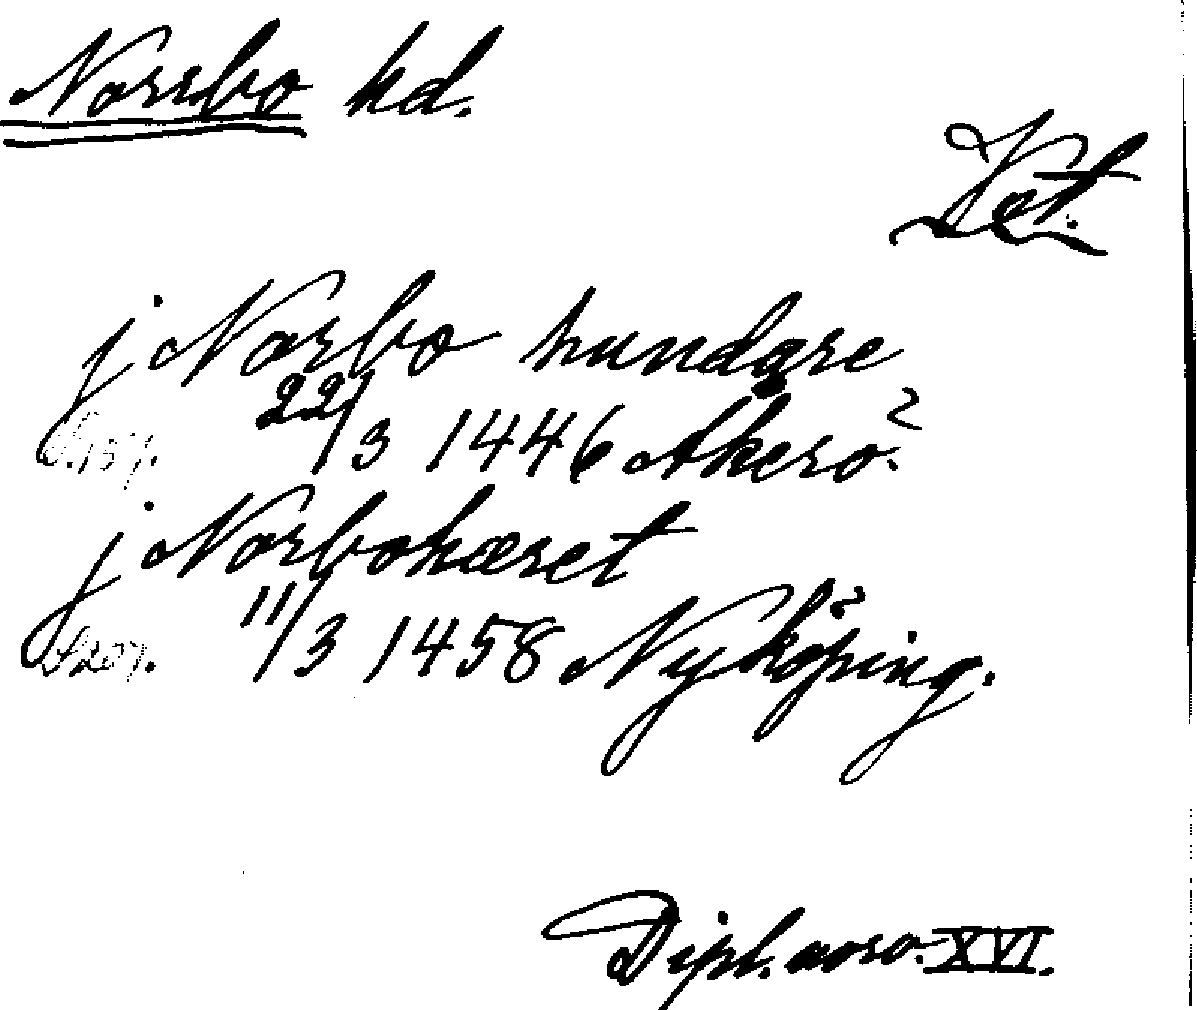 Norrbo hd.
j Norbo hundare
22/3 1446 Åkerö.
j Norbohæret
S 207. 11/3 1458 Nyköping.
Dipl. norv. XVI.